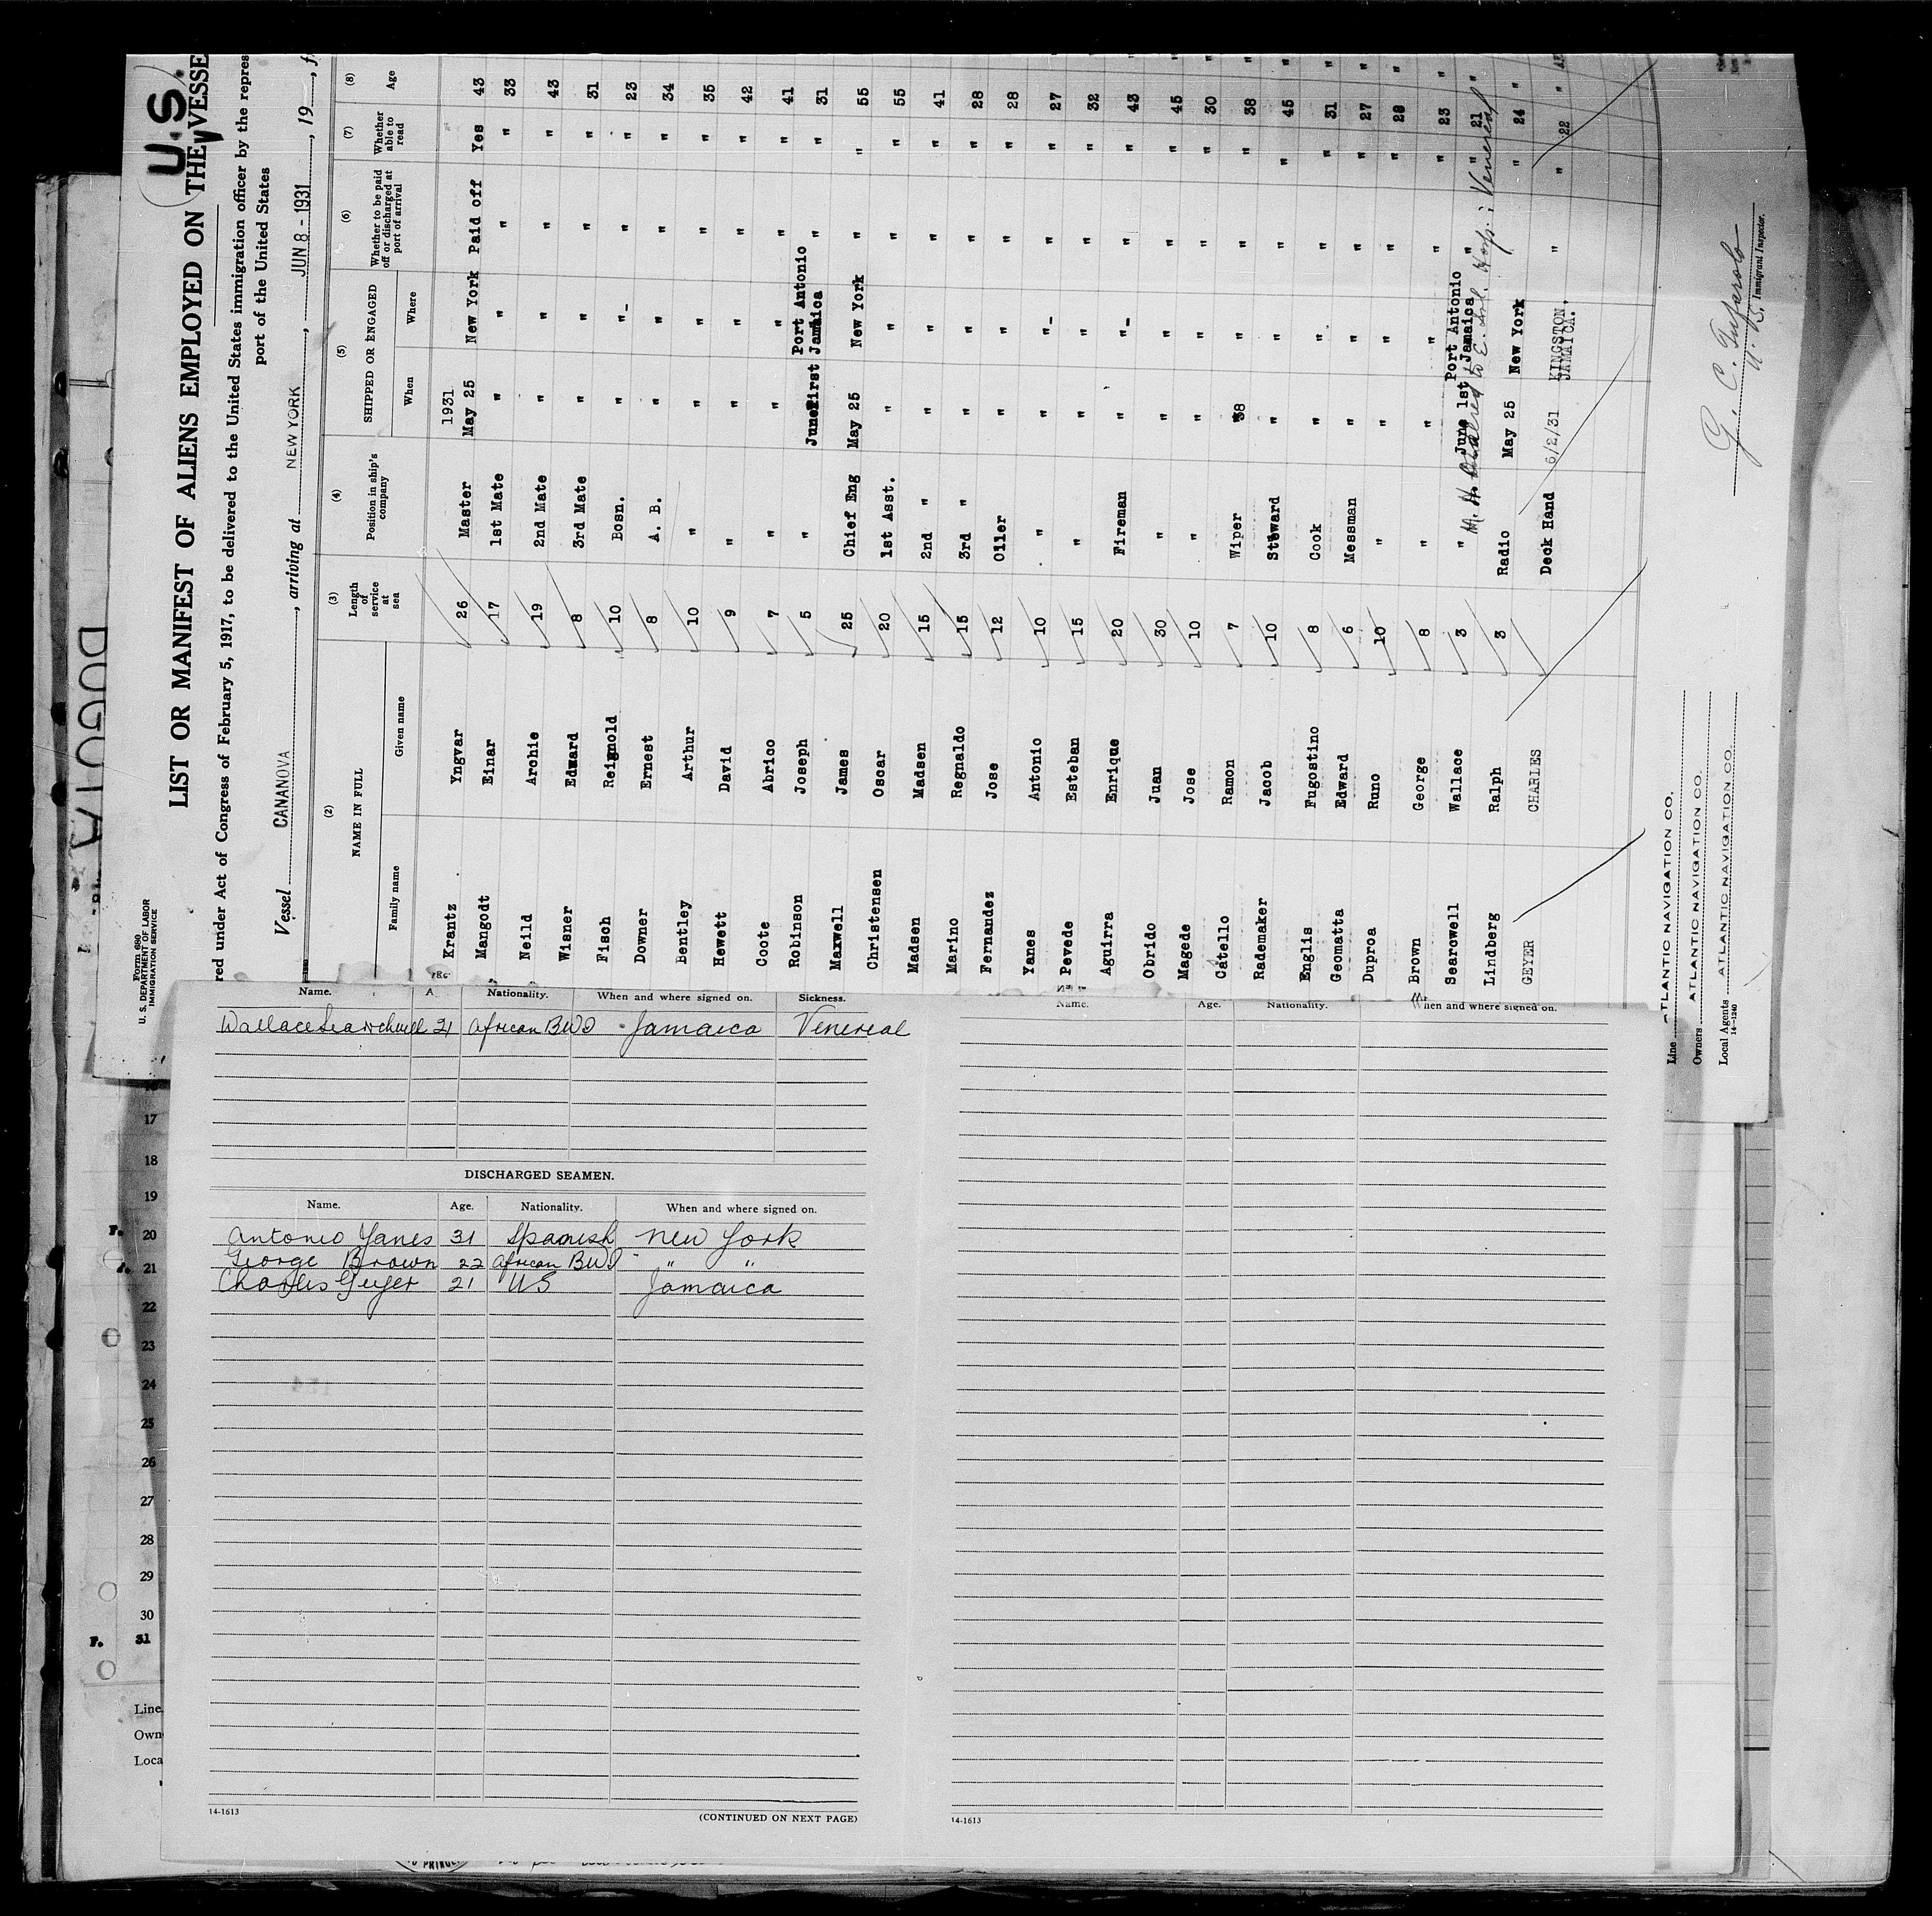 U.S.
Form 680
U. S. DEPARTMENT OF LABOR
IMMIGRATION SERVICE
LIST OR MANIFEST OF ALIENS EMPLOYED ON THE VESSE
red under Act of Congress of February 5, 1917, to be delivered to the United States immigration officer by the repres
port of the United States
Vessel CANANOVA, arriving at NEW YORK, JUN 8 - 1931, 19, f
(2) (3) (4) (5) (6) (7) (8)
NAME IN FULL Length of service at sea Position in ship's company SHIPPED OR ENGAGED Whether to be paid off or discharged at port of arrival Whether able to read Age
Family name Given name When Where
1931
Krantz Yngvar 26 Master May 25 New York Paid off Yes 43
Mangodt Einar 17 1st Mate " " " " 33
Neild Archie 19 2nd Mate " " " " 43
Wisner Edward 8 3rd Mate " " " " 31
Fisch Reignold 10 Bosn. " " " " 23
Downer Ernest 8 A. B. " " " " 34
Bentley Arthur 10 " " " " " 35
Hewett David 9 " " " " " 42
Coote Abrico 7 " " " " " 41
Robinson Joseph 5 " June first Port Antonio Jamaica " " 31
Maxwell James 25 Chief Eng May 25 New York " " 55
Christensen Oscar 20 1st Asst. " " " " 55
Madsen Madsen 15 2nd " " " " " 41
Marino Regnaldo 15 3rd " " " " " 28
Fernandez Jose 12 Oiler " " " " 28
Yanes Antonio 10 " " " " " 27
Pevede Esteban 15 " " " " " 32
Aguirra Enrique 20 Fireman " " " " 43
Obrido Juan 30 " " " " " 45
Magede Jose 10 " " " " " 30
Catello Ramon 7 Wiper 38 " " " 38
Rademaker Jacob 10 Steward " " " " 45
Englis Fugostino 8 Cook " " " " 31
Geomatta Edward 6 Messman " " " " 27
Duproa Runo 10 " " " " " 28
Brown George 8 " " " " " 23
Searcwell Wallace 3 " June 1st Port Antonio Jamaica " " 21
Lindberg Ralph 3 Radio May 25 New York " " 24
GEYER CHARLES Deck Hand 6/2/31 KINGSTON, JAMAICA. " " 22
Line ATLANTIC NAVIGATION CO.
Owners ATLANTIC NAVIGATION CO
Local Agents ATLANTIC NAVIGATION CO
14-1240
U. S. Immigrant Inspector.
Name. A Nationality. When and where signed on. Sickness.
Wallace Searchwell 21 African BWI Jamaica Venereal
DISCHARGED SEAMEN.
Name. Age. Nationality. When and where signed on.
Antonio Yanes 31 Spanish New York
George Brown 22 African BWI " "
Charles Geyer 21 US Jamaica
14-1613
(CONTINUED ON NEXT PAGE)
Name. Age. Nationality. When and where signed on.
14-1613
17
18
19
F. 20
21
22
23
24
25
26
27
28
29
30
F. 31
Line
Own
Loca